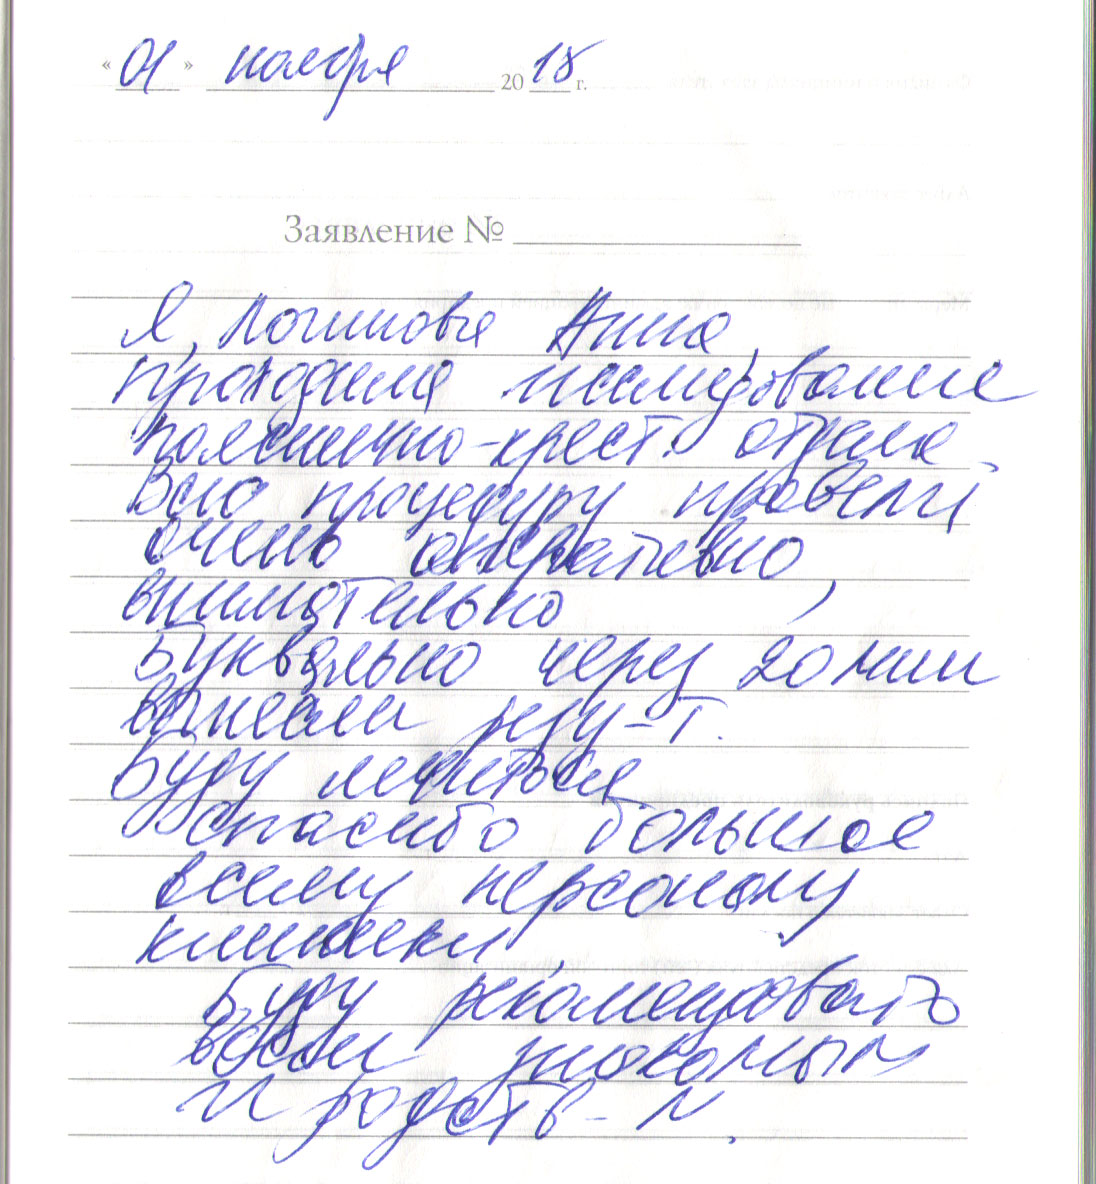 « 01 » ноября 2018 г.
Заявление №
Я, Логинова Анна,
проходила исследование
пояснично-крест. отдела.
Всю процедуру провели
очень оперативно,
внимательно
Буквально через 20 мин
вынесли резу-т.
Буду лечиться
Спасибо большое
всему персоналу
клиники.
Буду рекомендовать
всем знакомым
и родств-м.